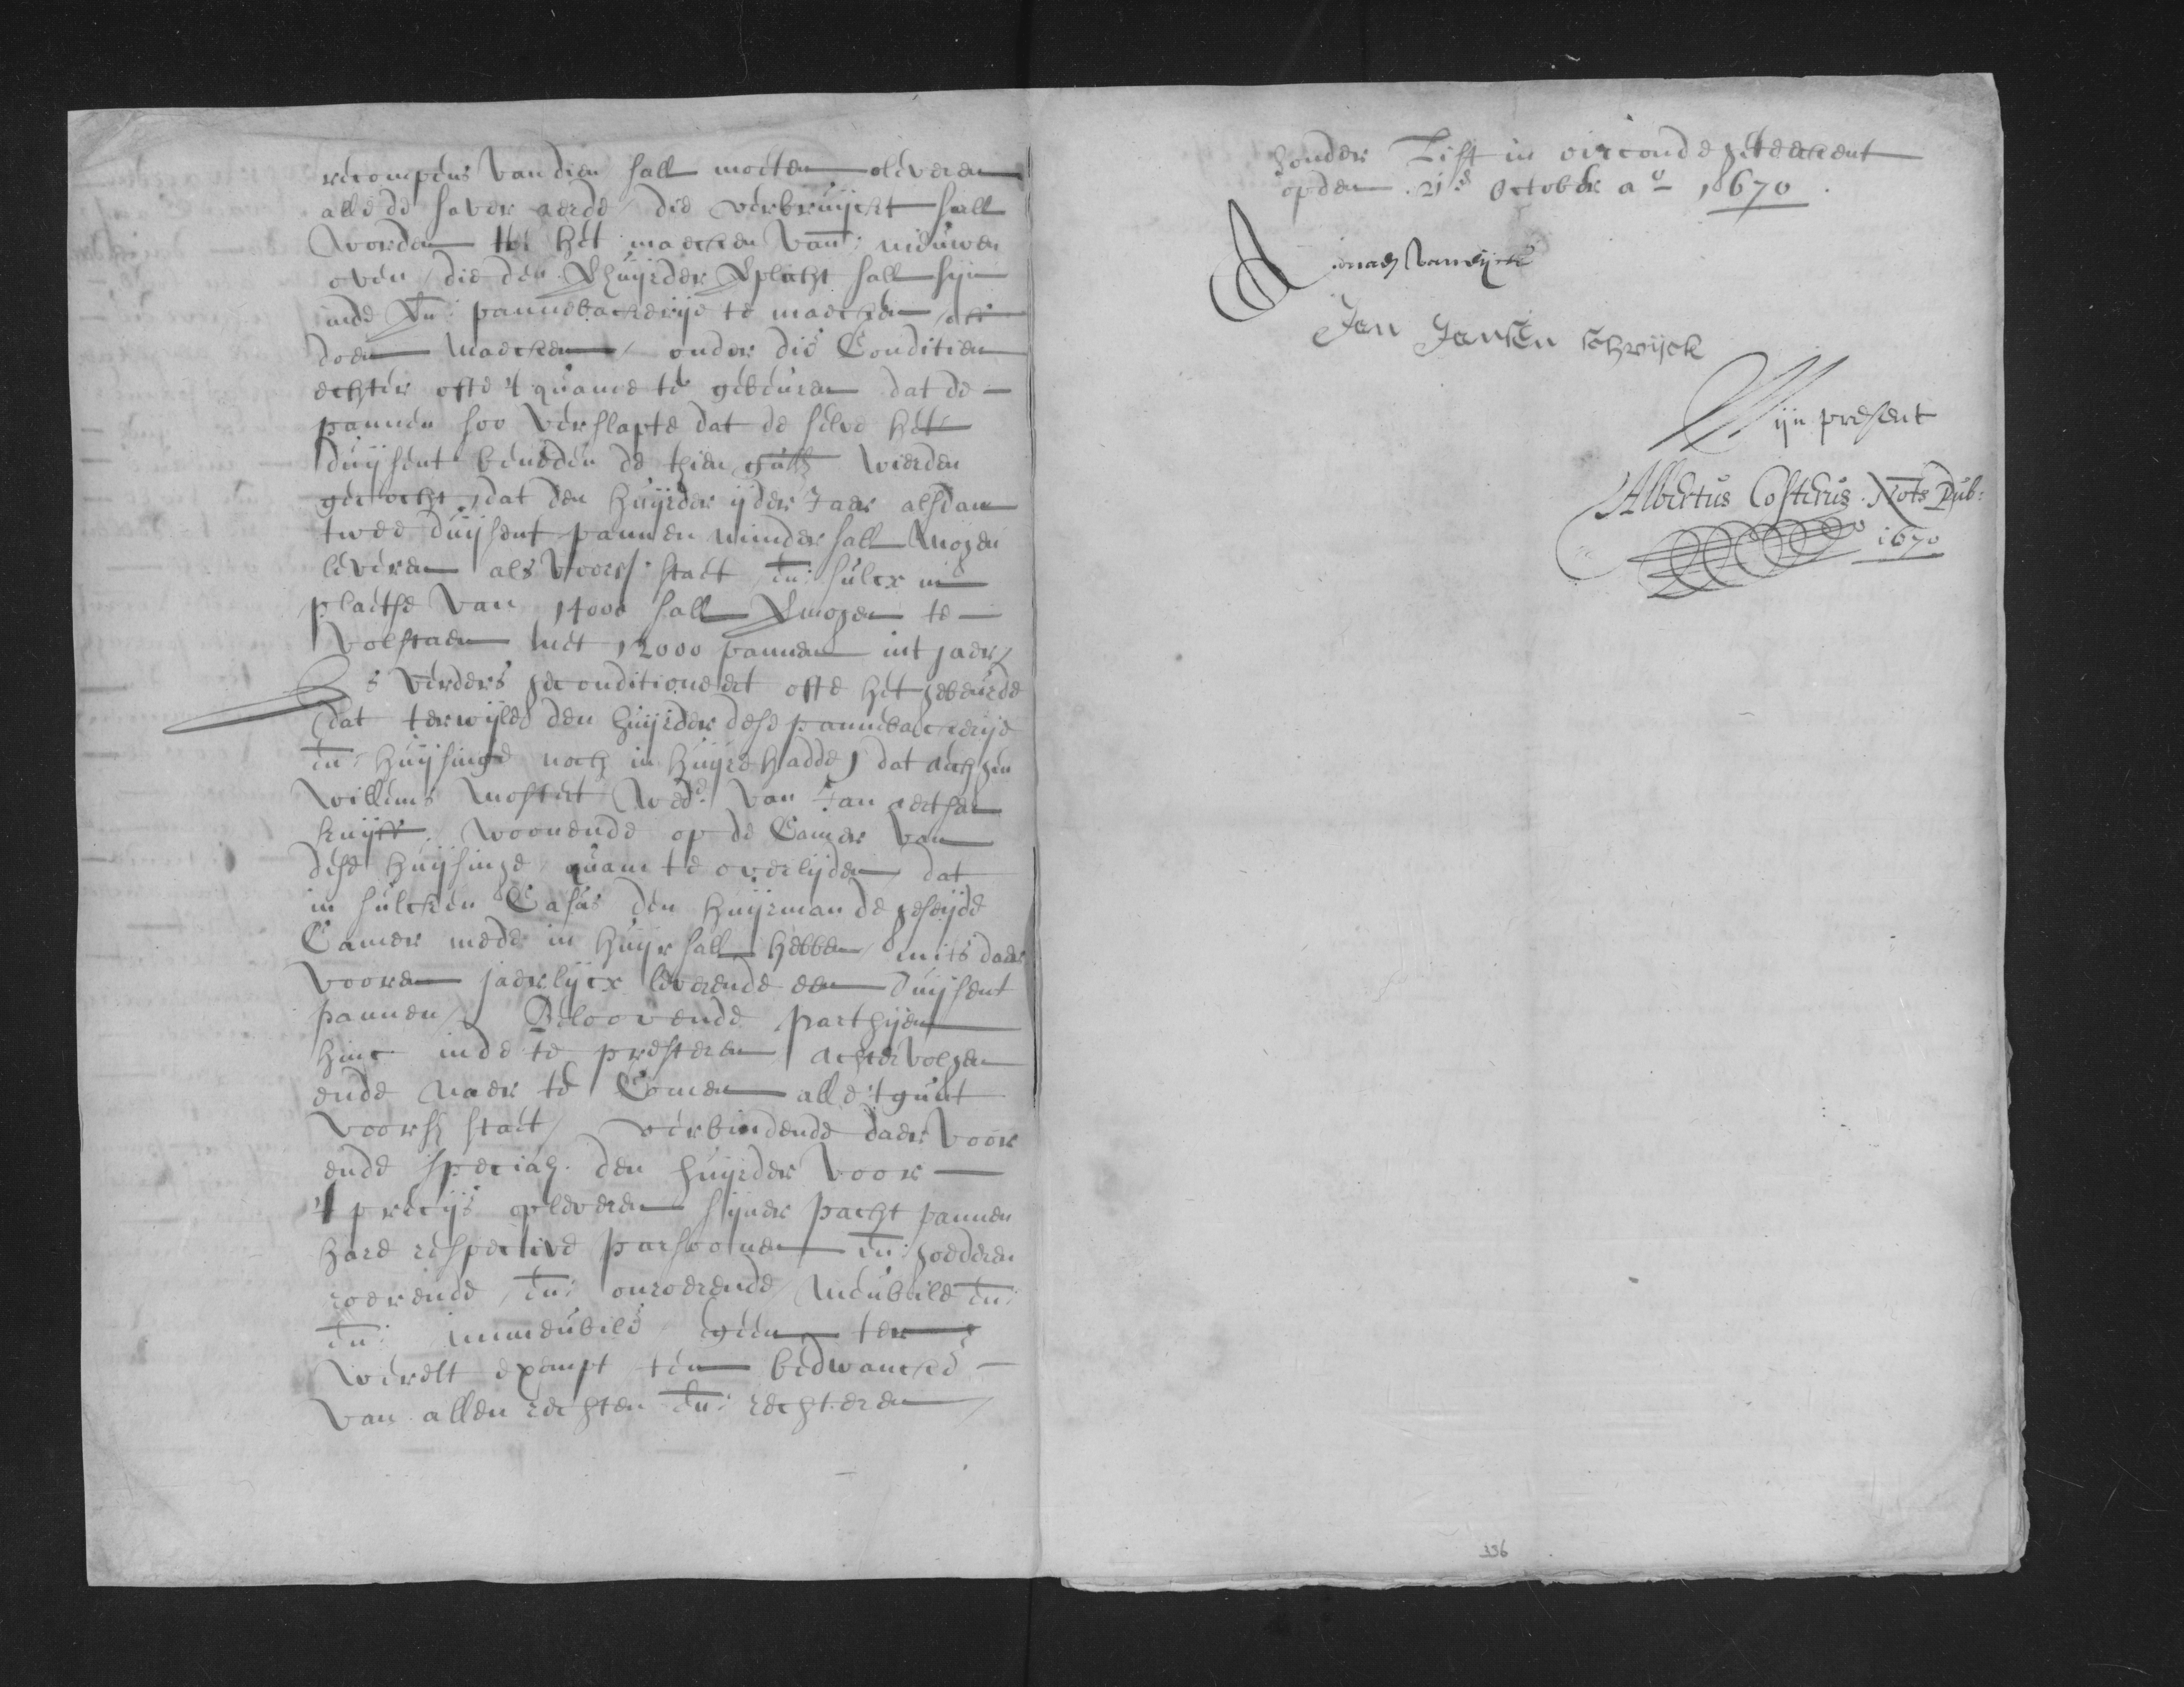 recompens van dien sall moeten oliveren
alle de haver aerde die verbruijckt sall
worden tot het maecken van: nieuwen
oven, die den Verhuijrder verplicht sall sijn
inde Vn: pannebackerije te maecken, off
doen maecken, onder die Conditien
echter ofte 't quame te gebeuren dat de
pannen soo verslapte dat de selve het
duijsent beneden de thien gulds wierden
gecocht, dat den huijrder ijder Jaer alsdan
twee duijsent pannen minder sall mogen
leveren als voors: staet, en: sulcx in
plaetse van 14000 sall vermogen te
volstaen met 12000 pannen int jaer,
Is verders geconditioneert ofte het gebeurde
dat terwijle den huijrder dese pannebackerije
en: huijsinge noch in huijre hadde, dat
Willems Mostert wed.e van Jan aertsen
kuijff, woonende op de Camer van
dese huijsinge, quam te overlijden, dat
in sulcken Casus den huijrman de geseijde
Camer mede in huijr sall hebben, mits daer
vooren jaerlijcx leverende een duijsent
pannen, Beloovende parthijen
hinc inde te presteren, achtervolgen
ende naer te Comen alle 't gunt
voorsz staet, verbindende daer voor
ende speciaez. den huijrder voor
't precijs opleveren sijner pacht pannen
hare respective persoonen en: goederen
roerende, en: onroerende, meubile en:
en: immeubile geen ter
werelt exempt ten bedwancke
van allen rechten en: rechteren
sonder List in oirconde geteeckent
opden 21e October ao 1670.
Jan Jansen schrijck
Mijn present
Albertus Costerus. Nots Pub:
1670
336